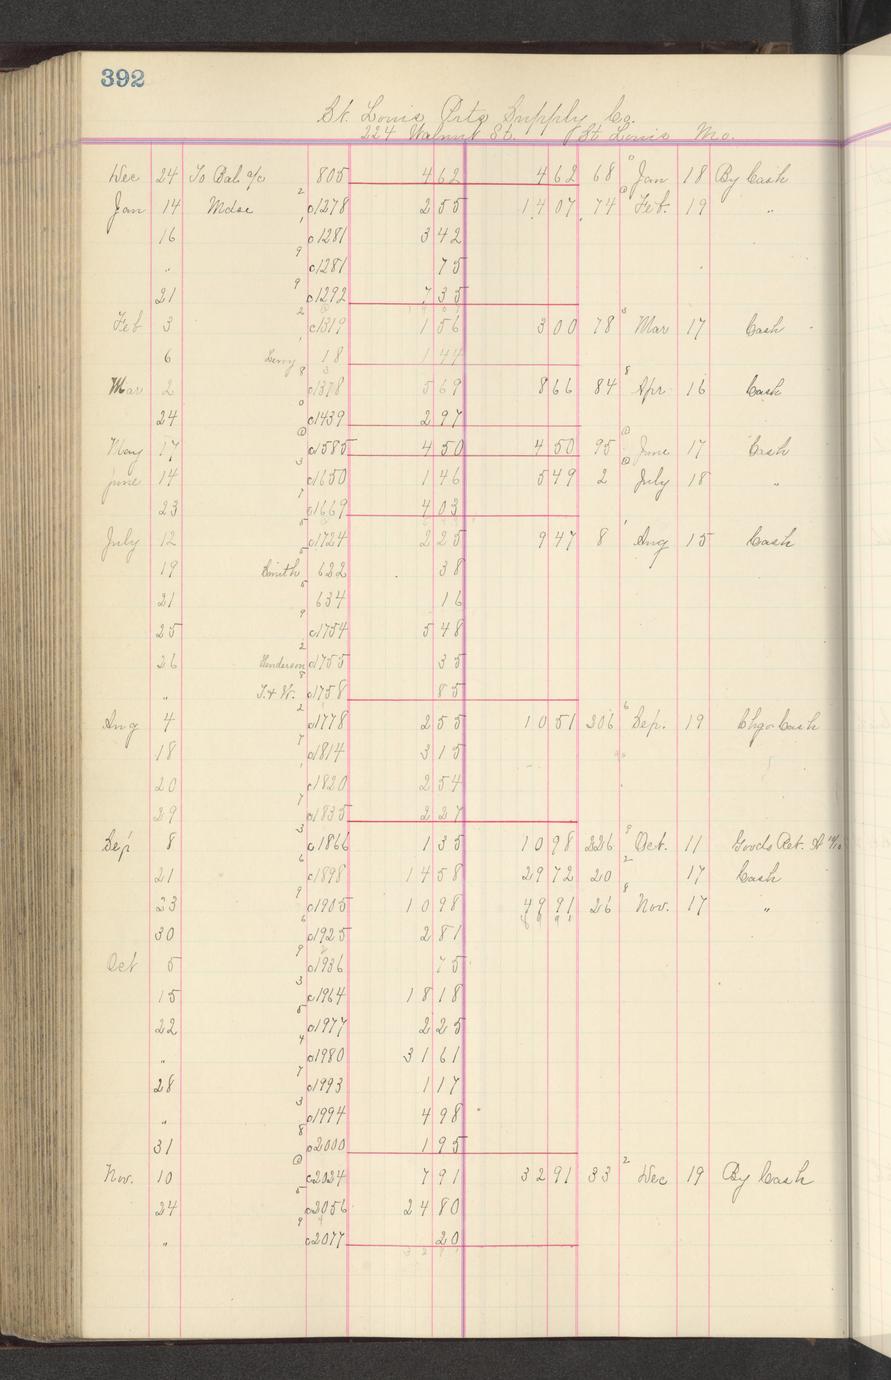 392
St. Louis Arts Supply Co.
224 Walnut St. St Louis Mo.
Dec 24 To Bal a/c 805 4 62 4 62 68 Jan 18 By Cash
Jan 14 Mdse 2 c1278 2 55 14 07 74 Feb. 19 "
16 1 c1281 3 42
" 9 c1281 75
21 9 c1292 7 35
Feb 3 2 c1319 1 56 3 00 78 Mar 17 Cash
6 18 1 44
Mar 2 8 c1378 5 69 8 66 84 Apr 16 Cash
24 0 c1439 2 97
May 17 c1585 4 50 4 50 95 June 17 Cash
June 14 3 c1650 1 46 5 49 2 July 18 "
23 7 c1669 4 03
July 12 5 c1724 2 25 9 47 8 Aug 15 Cash
19 Smith 5 622 38
21 5 634 16
25 9 c1754 5 48
26 Henderson 2 c1755 35
" T. & W. 8 c1758 85
Aug 4 2 c1778 2 55 10 51 206 Sep. 19 Chgo Cash
18 7 c1814 3 15
20 1 c1820 2 54
29 7 c1835 2 27
Sep 8 3 c1866 1 35 10 98 226 Oct. 11 Goods Ret.
21 6 c1898 14 58 29 72 20 17 Cash
23 9 c1905 10 98 49 91 26 Nov. 17 "
30 6 c1925 2 81
Oct 5 9 c1936 75
15 3 c1964 18 18
22 5 c1977 2 25
" 4 c1980 31 61
28 7 c1993 1 17
" 3 c1994 4 98
31 8 c2000 1 95
Nov. 10 c2024 7 91 32 91 33 Dec 19 By Cash
24 5 c2056 24 80
" 9 c2077 20